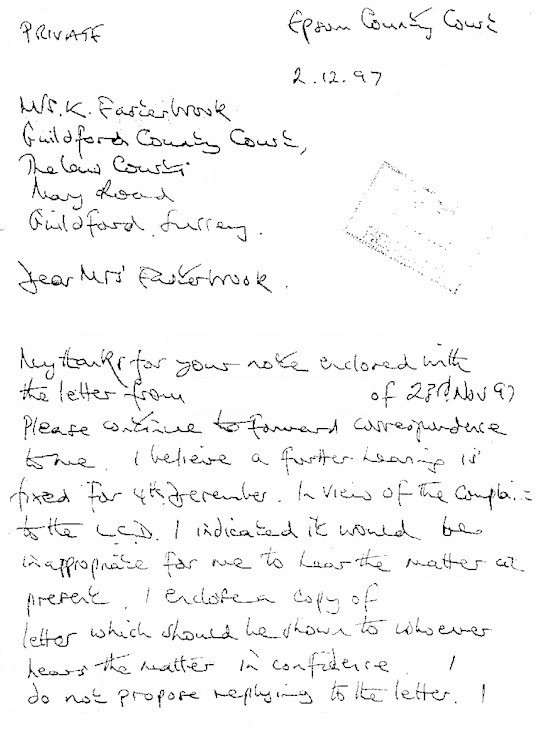 PRIVATE
Epsom County Court
2.12.97
Mrs. K. Easterbrook
Guildford County Court,
The Law Courts
Mary Road
Guildford, Surrey.
Dear Mrs Easterbrook.
My thanks for your note enclosed with
the letter from of 23rd Nov 97
Please continue to forward correspondence
to me. I believe a further hearing is
fixed for 4th December. In view of the Complai-
to the L.C.D. I indicated it would be
inappropriate for me to hear the matter at
present. I enclose a copy of
letter which should be shown to whoever
hears the matter in confidence. I
do not propose replying to the letter. I